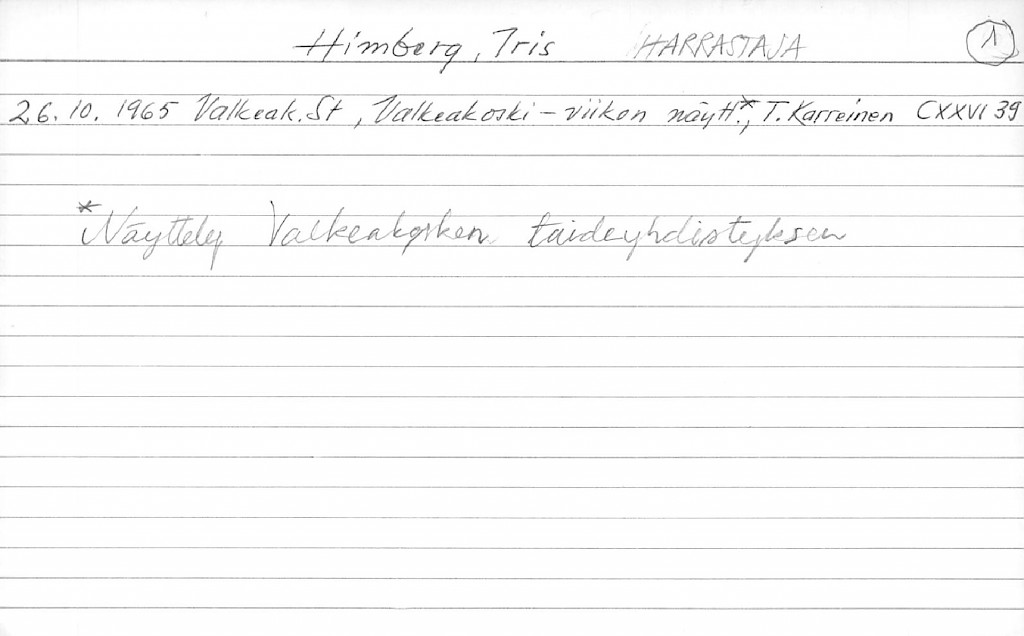 Himberg, Iris HARRASTAJA 1
26.10. 1965 Valkeak. St, Valkeakoski-viikon näytt.*, T. Karreinen CXXVI 39
*Näyttely Valkeakosken taideyhdistyksen